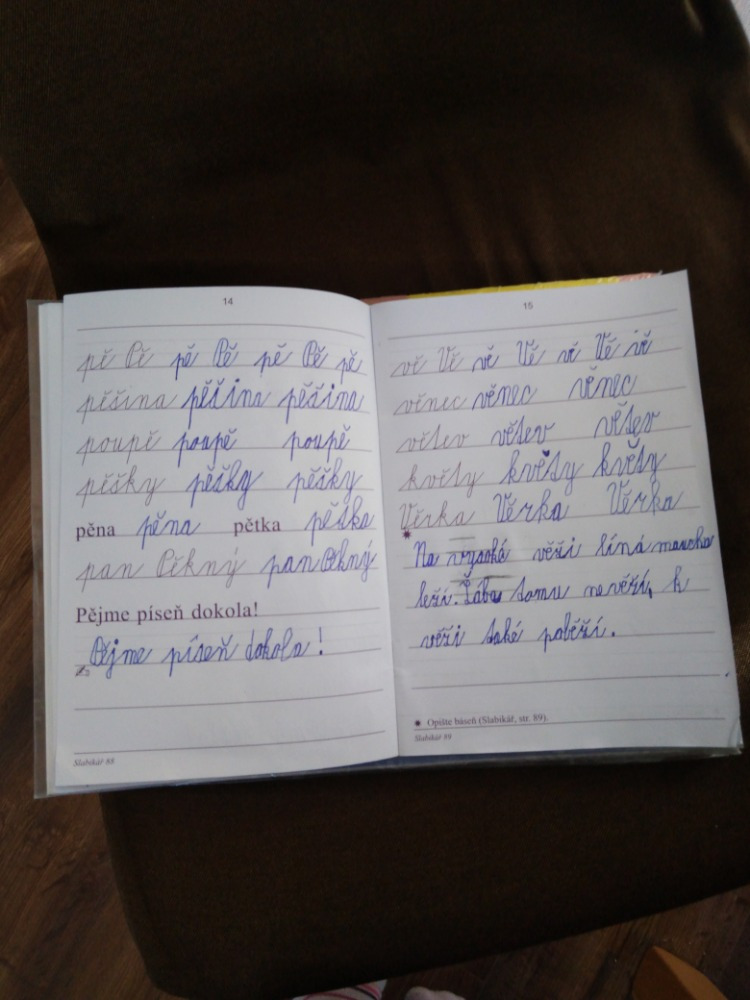 14
pě Pě pě Pě pě Pě pě
pěšina pěšina pěšina
poupě poupě poupě
pěšky pěšky pěšky
pěna pěna pětka pětka
pan Pěkný pan Pěkný
Pějme píseň dokola!
Pějme píseň dokola!
Slabikář 88
15
vě Vě vě Vě vě Vě vě
věnec věnec věnec
větev větev větev
květy květy květy
Věrka Věrka Věrka
Na vysoké věži líná moucha
leží. Žába tomu nevěří, k
věži také poběží.
✷ Opište báseň (Slabikář, str. 89).
Slabikář 89